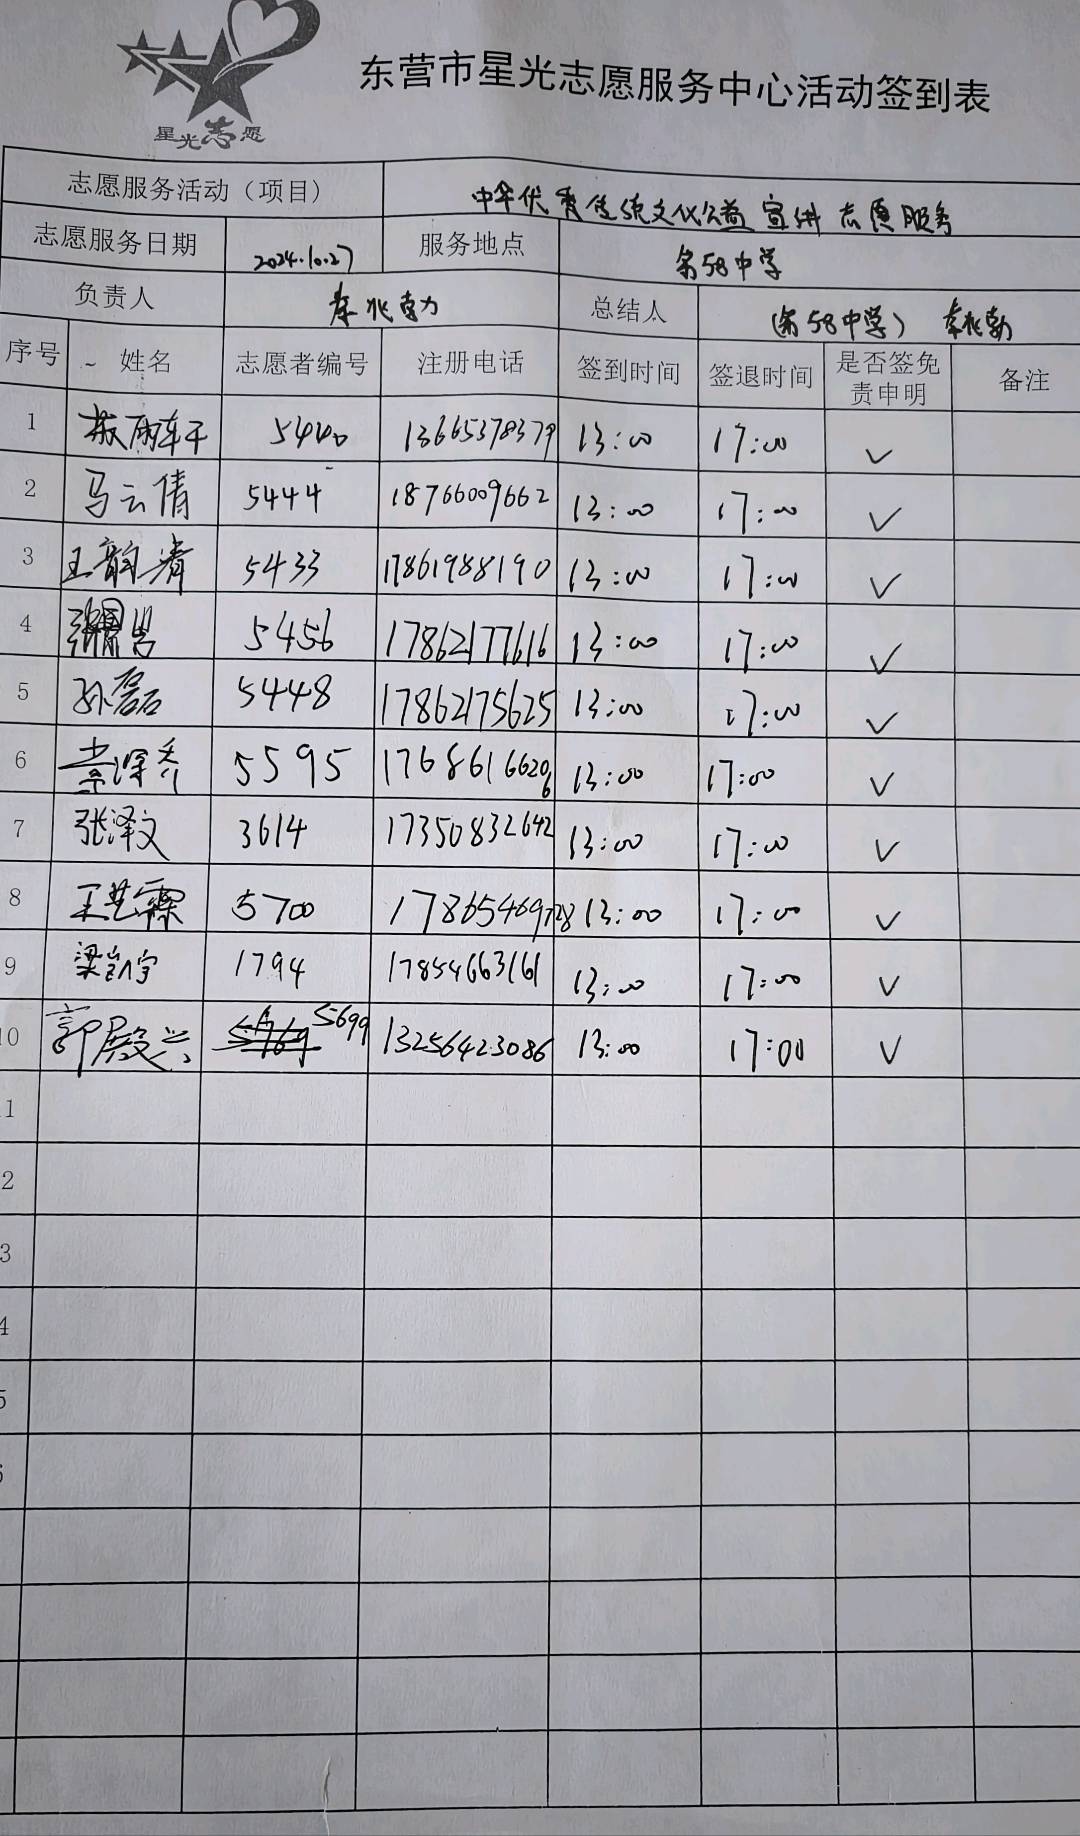 星光志愿
东营市星光志愿服务中心活动签到表
志愿服务活动（项目） 中华优秀传统文化公益宣讲志愿服务
志愿服务日期 2024.10.27 服务地点 第58中学
负责人 总结人 （第58中学）
序号 姓名 志愿者编号 注册电话 签到时间 签退时间 是否签免责申明 备注
1 5440 13665378379 13:00 17:00 ✓
2 马云倩 5444 18766009662 13:00 17:00 ✓
3 王韵清 5433 17861988190 13:00 17:00 ✓
4 5456 17862177616 13:00 17:00 ✓
5 孙磊 5448 17862175625 13:00 17:00 ✓
6 5595 13:00 17:00 ✓
7 张泽文 3614 17350832642 13:00 17:00 ✓
8 王艺霖 5700 17865469728 13:00 17:00 ✓
9 梁凯宇 1794 17854663161 13:00 17:00 ✓
10 郭殿兴 5699 13256423086 13:00 17:00 ✓
11
12
13
14
15
16